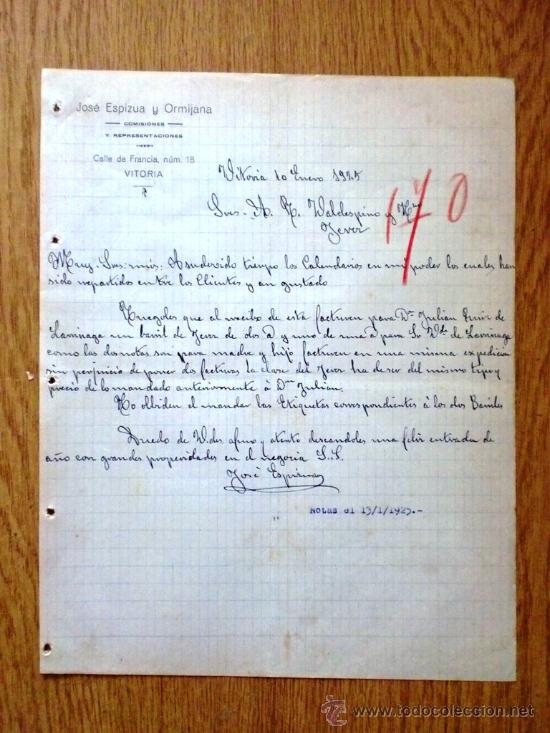 José Espizua y Ormijana
COMISIONES
Y REPRESENTACIONES
Calle de Francia, núm. 18
VITORIA
Vitoria 10 Enero 1925
Sres. A. R. Valdespino y Hno
Jerez
170
Muy Sres. mios: Asudevido tiempo los Calendarios en mi poder los cuales han
sido repartidos entre los Clientes y an gustado
Ruegoles que al recibo de está facturen para Dn Julian Ruiz de
Larrinaga un barril de Jerez de dos @ y uno de una @ para Sa Vda de Larrinaga
como las dos notas son para madre y hijo facturen en una misma expedicion
sin perjuicio de poner dos facturas la clase del Jerez ha de ser del mismo tipo y
precio de lo mandado anteriormente á Dn Julian.
No olbiden el mandar las Etiquetas correspondientes á los dos Bariles
Quedo de Vdes afmo y atento deseandoles una feliz entrada de
año con grandes properidades en el negocio S.S.
José Espizua
Notas el 13/1/1925.-
todocoleccion
www.todocoleccion.net